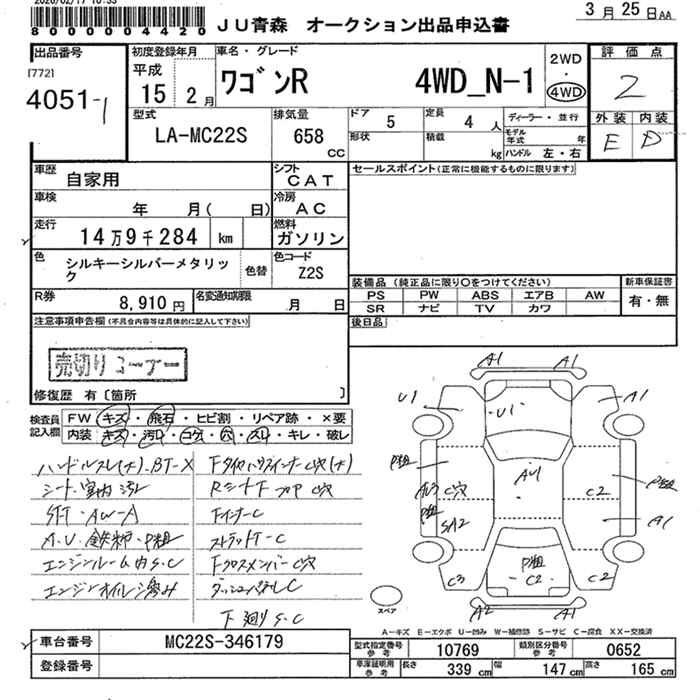 2026/02/17 10:33
8000004420
JU青森 オークション出品申込書
3月25日AA
出品番号
[772]
4051-1
初度登録年月
平成
15 2月
車名・グレード
ワゴンR 4WD_N-1
2WD
・
4WD
評価点
2
外装 内装
E D
型式
LA-MC22S
排気量
658
CC
ドア
5
定員
4 人
形状
積載
kg
ディーラー・並行
モデル年式 年
ハンドル 左・右
車歴
自家用
シフト
CAT
車検
年 月( 日)
冷房
AC
走行
14万9千284 km
燃料
ガソリン
色
シルキーシルバーメタリック
色替
色コード
Z2S
R券
8,910円
名変通知期限
月 日
セールスポイント(正常に機能するものに限ります)
装備品(純正品に限り○をつけてください)
PS PW ABS エアB AW
SR ナビ TV カワ
新車保証書
有・無
後日品
注意事項申告欄(不具合内容等は具体的に記入して下さい)
売切りコーナー
修復歴 有〔箇所 〕
検査員記入欄
FW キズ・飛石・ヒビ割・リペア跡・×要
内装・キズ・汚れ・コゲ・穴・スレ・キレ・破レ
ハンドルスレ(大).BT-X
シート・室内汚レ
エンジンルーム内S.C
エンジンオイル滲み
下廻りS-C
A1
A1
U1
A1
U1
AU1
C穴
C2
A1
C3
C2
C2
A2
A1
スペア
A-キズ E-エクボ U-凹み W-補修跡 S-サビ C-腐食 XX-交換済
車台番号
MC22S-346179
登録番号
型式指定番号 参考
10769
類別区分番号 参考
0652
車庫証明用 参考
長さ 339 cm
幅 147 cm
高さ 165 cm